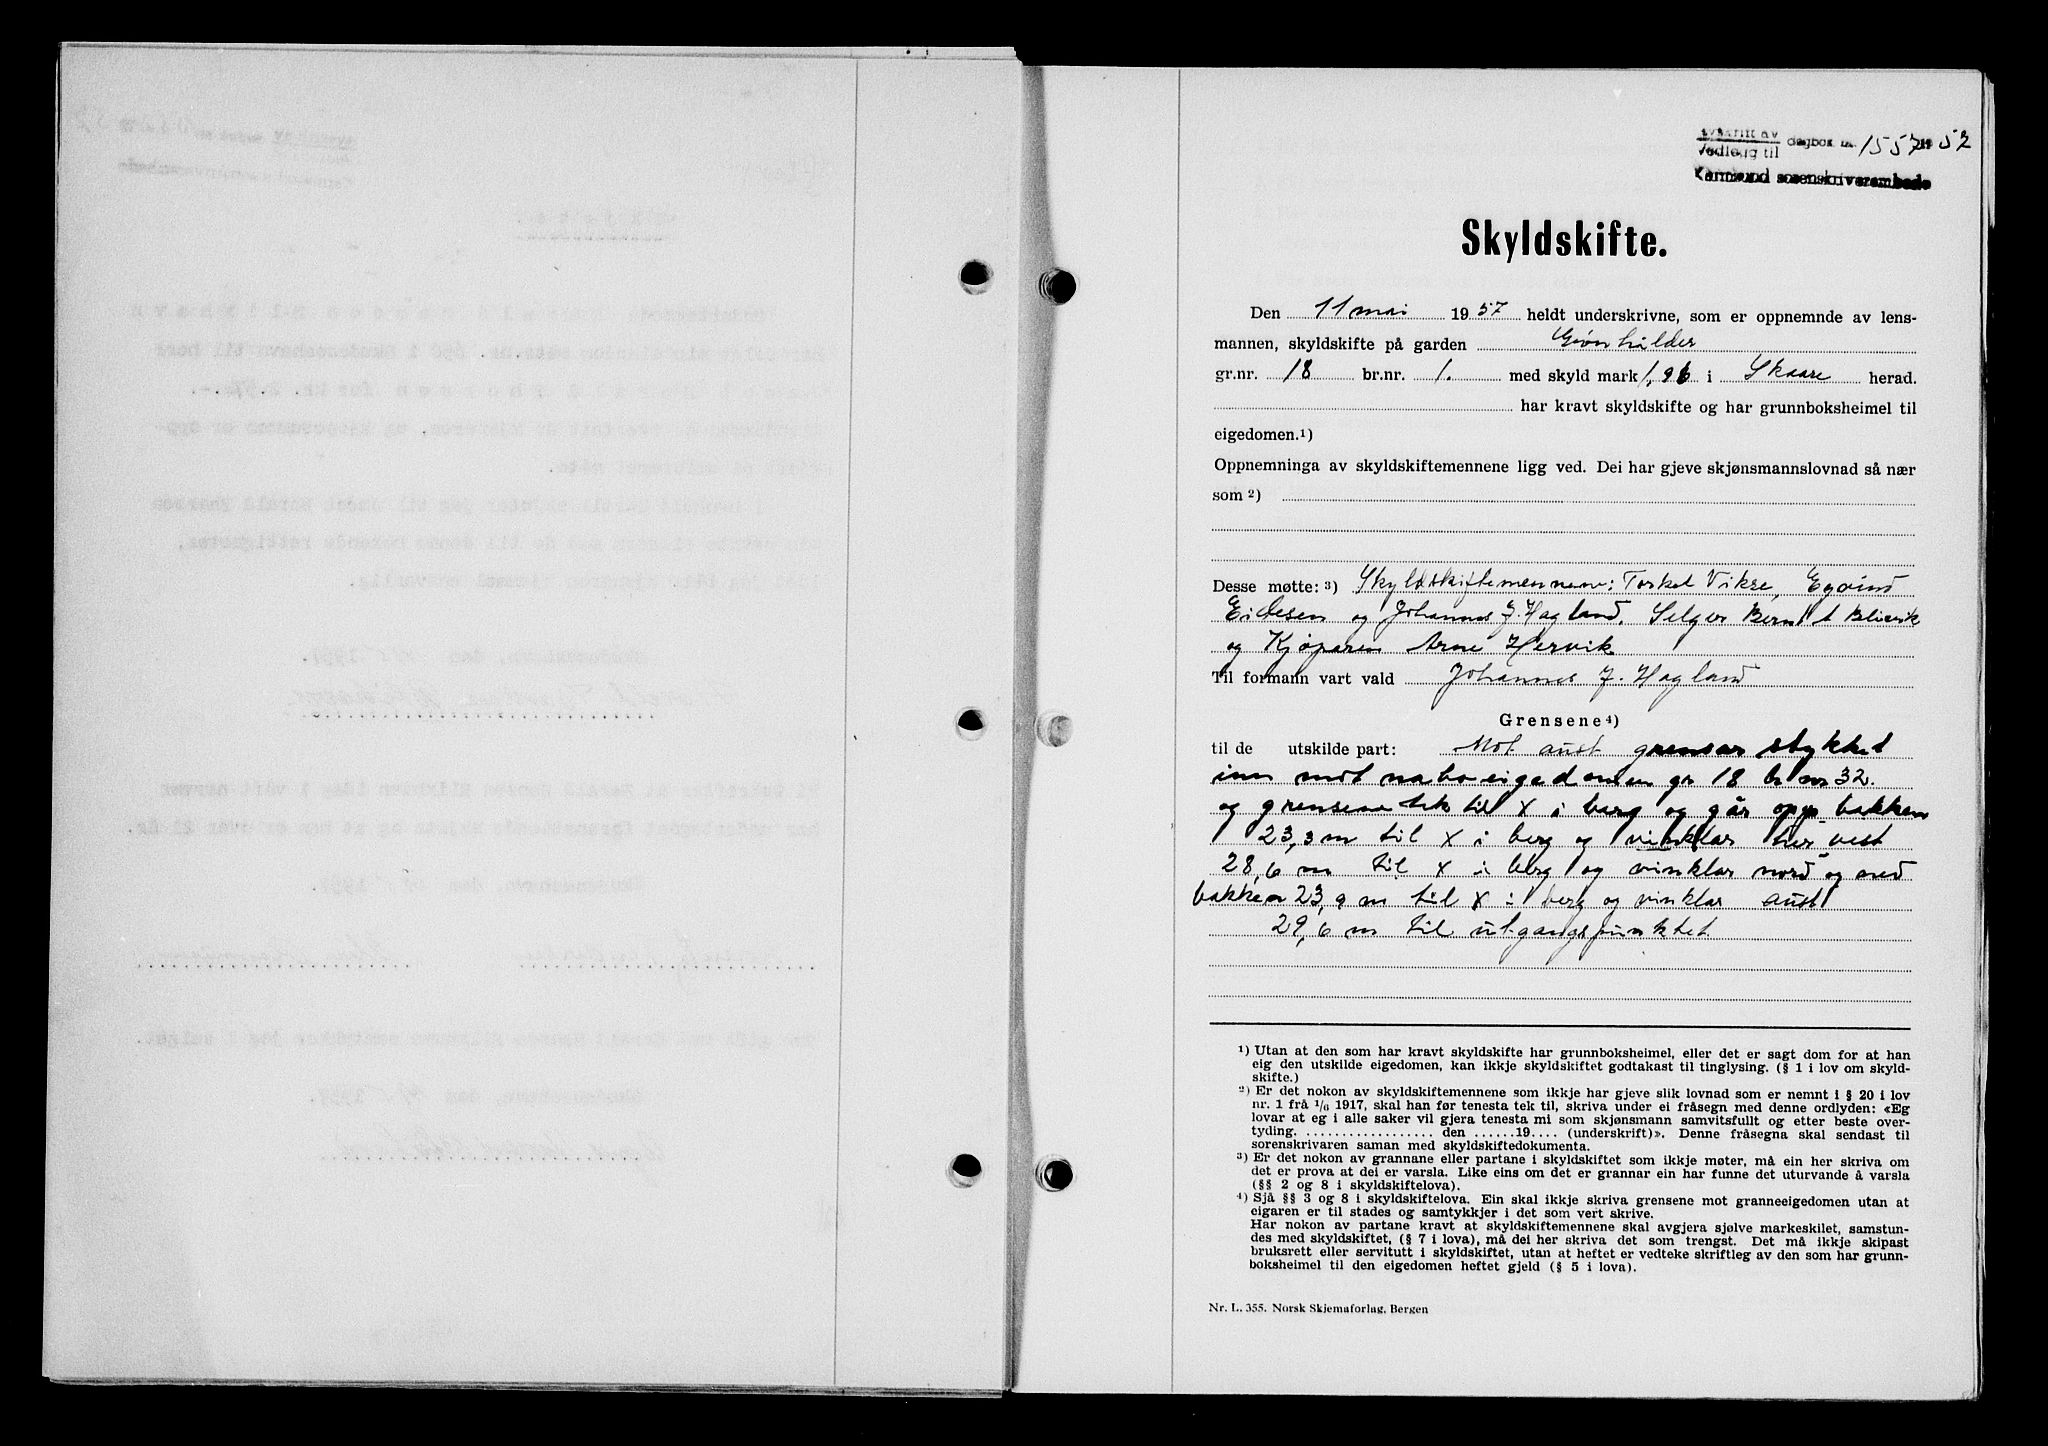 Avskrift av
Vedlegg til dagbok nr. 1557 1957
Karmsund sorenskriverembede
Skyldskifte.
Den 11 mai 1957 heldt underskrivne, som er oppnemnde av lens-
mannen, skyldskifte på garden
gr.nr. 18 br.nr. 1. med skyld mark 1,96 i Skaare herad.
har kravt skyldskifte og har grunnboksheimel til
eigedomen.1)
Oppnemninga av skyldskiftemennene ligg ved. Dei har gjeve skjønsmannslovnad så nær
som 2)
Desse møtte: 3) Skyldskiftemennene: Torkel Vikse, Eyvind
Eidesen og Johannes J. Hagland. Selger Bernt Blikvik
og Kjøparen Arne Hervik
Til formann vart vald Johannes J. Hagland
Grensene 4)
til de utskilde part: Mot aust grensar stykket
inn mot naboeigedomen gr 18 br nr 32.
og grensene tek til X i berg og går opp bakken
23,3 m til X i berg og vinklar her vest
28,6 m til X i berg og vinklar nord og ned
bakken 23,9 m til X i berg og vinklar aust
29,6 m til utgangspunktet
1) Utan at den som har kravt skyldskifte har grunnboksheimel, eller det er sagt dom for at han
eig den utskilde eigedomen, kan ikkje skyldskiftet godtakast til tinglysing. (§ 1 i lov om skyld-
skifte.)
2) Er det nokon av skyldskiftemennene som ikkje har gjeve slik lovnad som er nemnt i § 20 i lov
nr. 1 frå 1/6 1917, skal han før tenesta tek til, skriva under ei fråsegn med denne ordlyden: «Eg
lovar at eg i alle saker vil gjera tenesta mi som skjønsmann samvitsfullt og etter beste over-
tyding. .................. den ......19.... (underskrift)». Denne fråsegna skal sendast til
sorenskrivaren saman med skyldskiftedokumenta.
3) Er det nokon av grannane eller partane i skyldskiftet som ikkje møter, må ein her skriva om
det er prova at dei er varsla. Like eins om det er grannar ein har funne det uturvande å varsla
(§§ 2 og 8 i skyldskiftelova).
4) Sjå §§ 3 og 8 i skyldskiftelova. Ein skal ikkje skriva grensene mot granneeigedomen utan at
eigaren er til stades og samtykkjer i det som vert skrive.
Har nokon av partane kravt at skyldskiftemennene skal avgjera sjølve markeskilet, samstun-
des med skyldskiftet, (§ 7 i lova), må dei her skriva det som trengst. Det må ikkje skipast
bruksrett eller servitutt i skyldskiftet, utan at heftet er vedteke skriftleg av den som har grunn-
boksheimel til den eigedomen heftet gjeld (§ 5 i lova).
Nr. L. 355. Norsk Skjemaforlag, Bergen